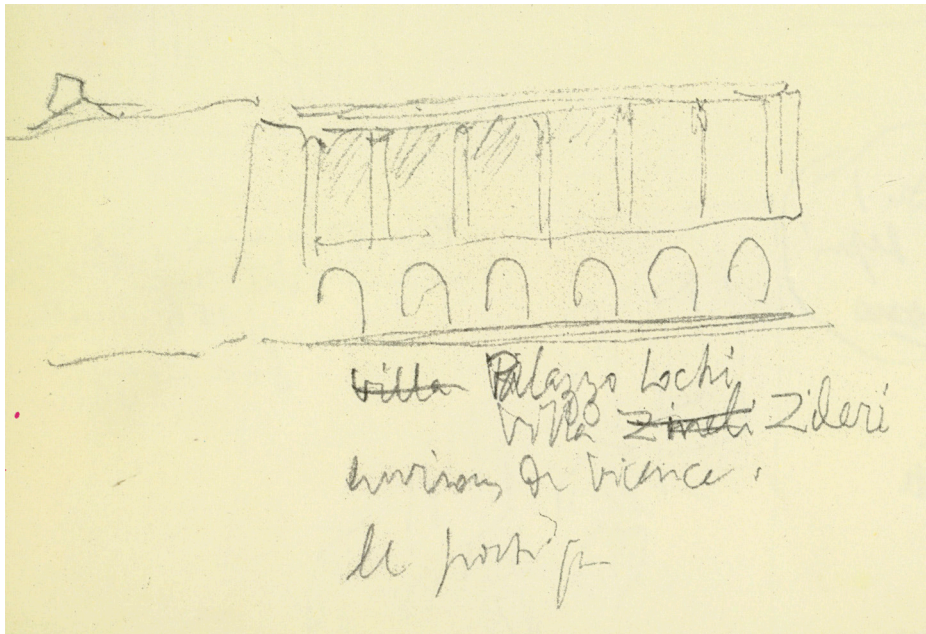 Villa Palazzo Lochi
Villa Zineli Zileri
environs de Vicence.
le portique